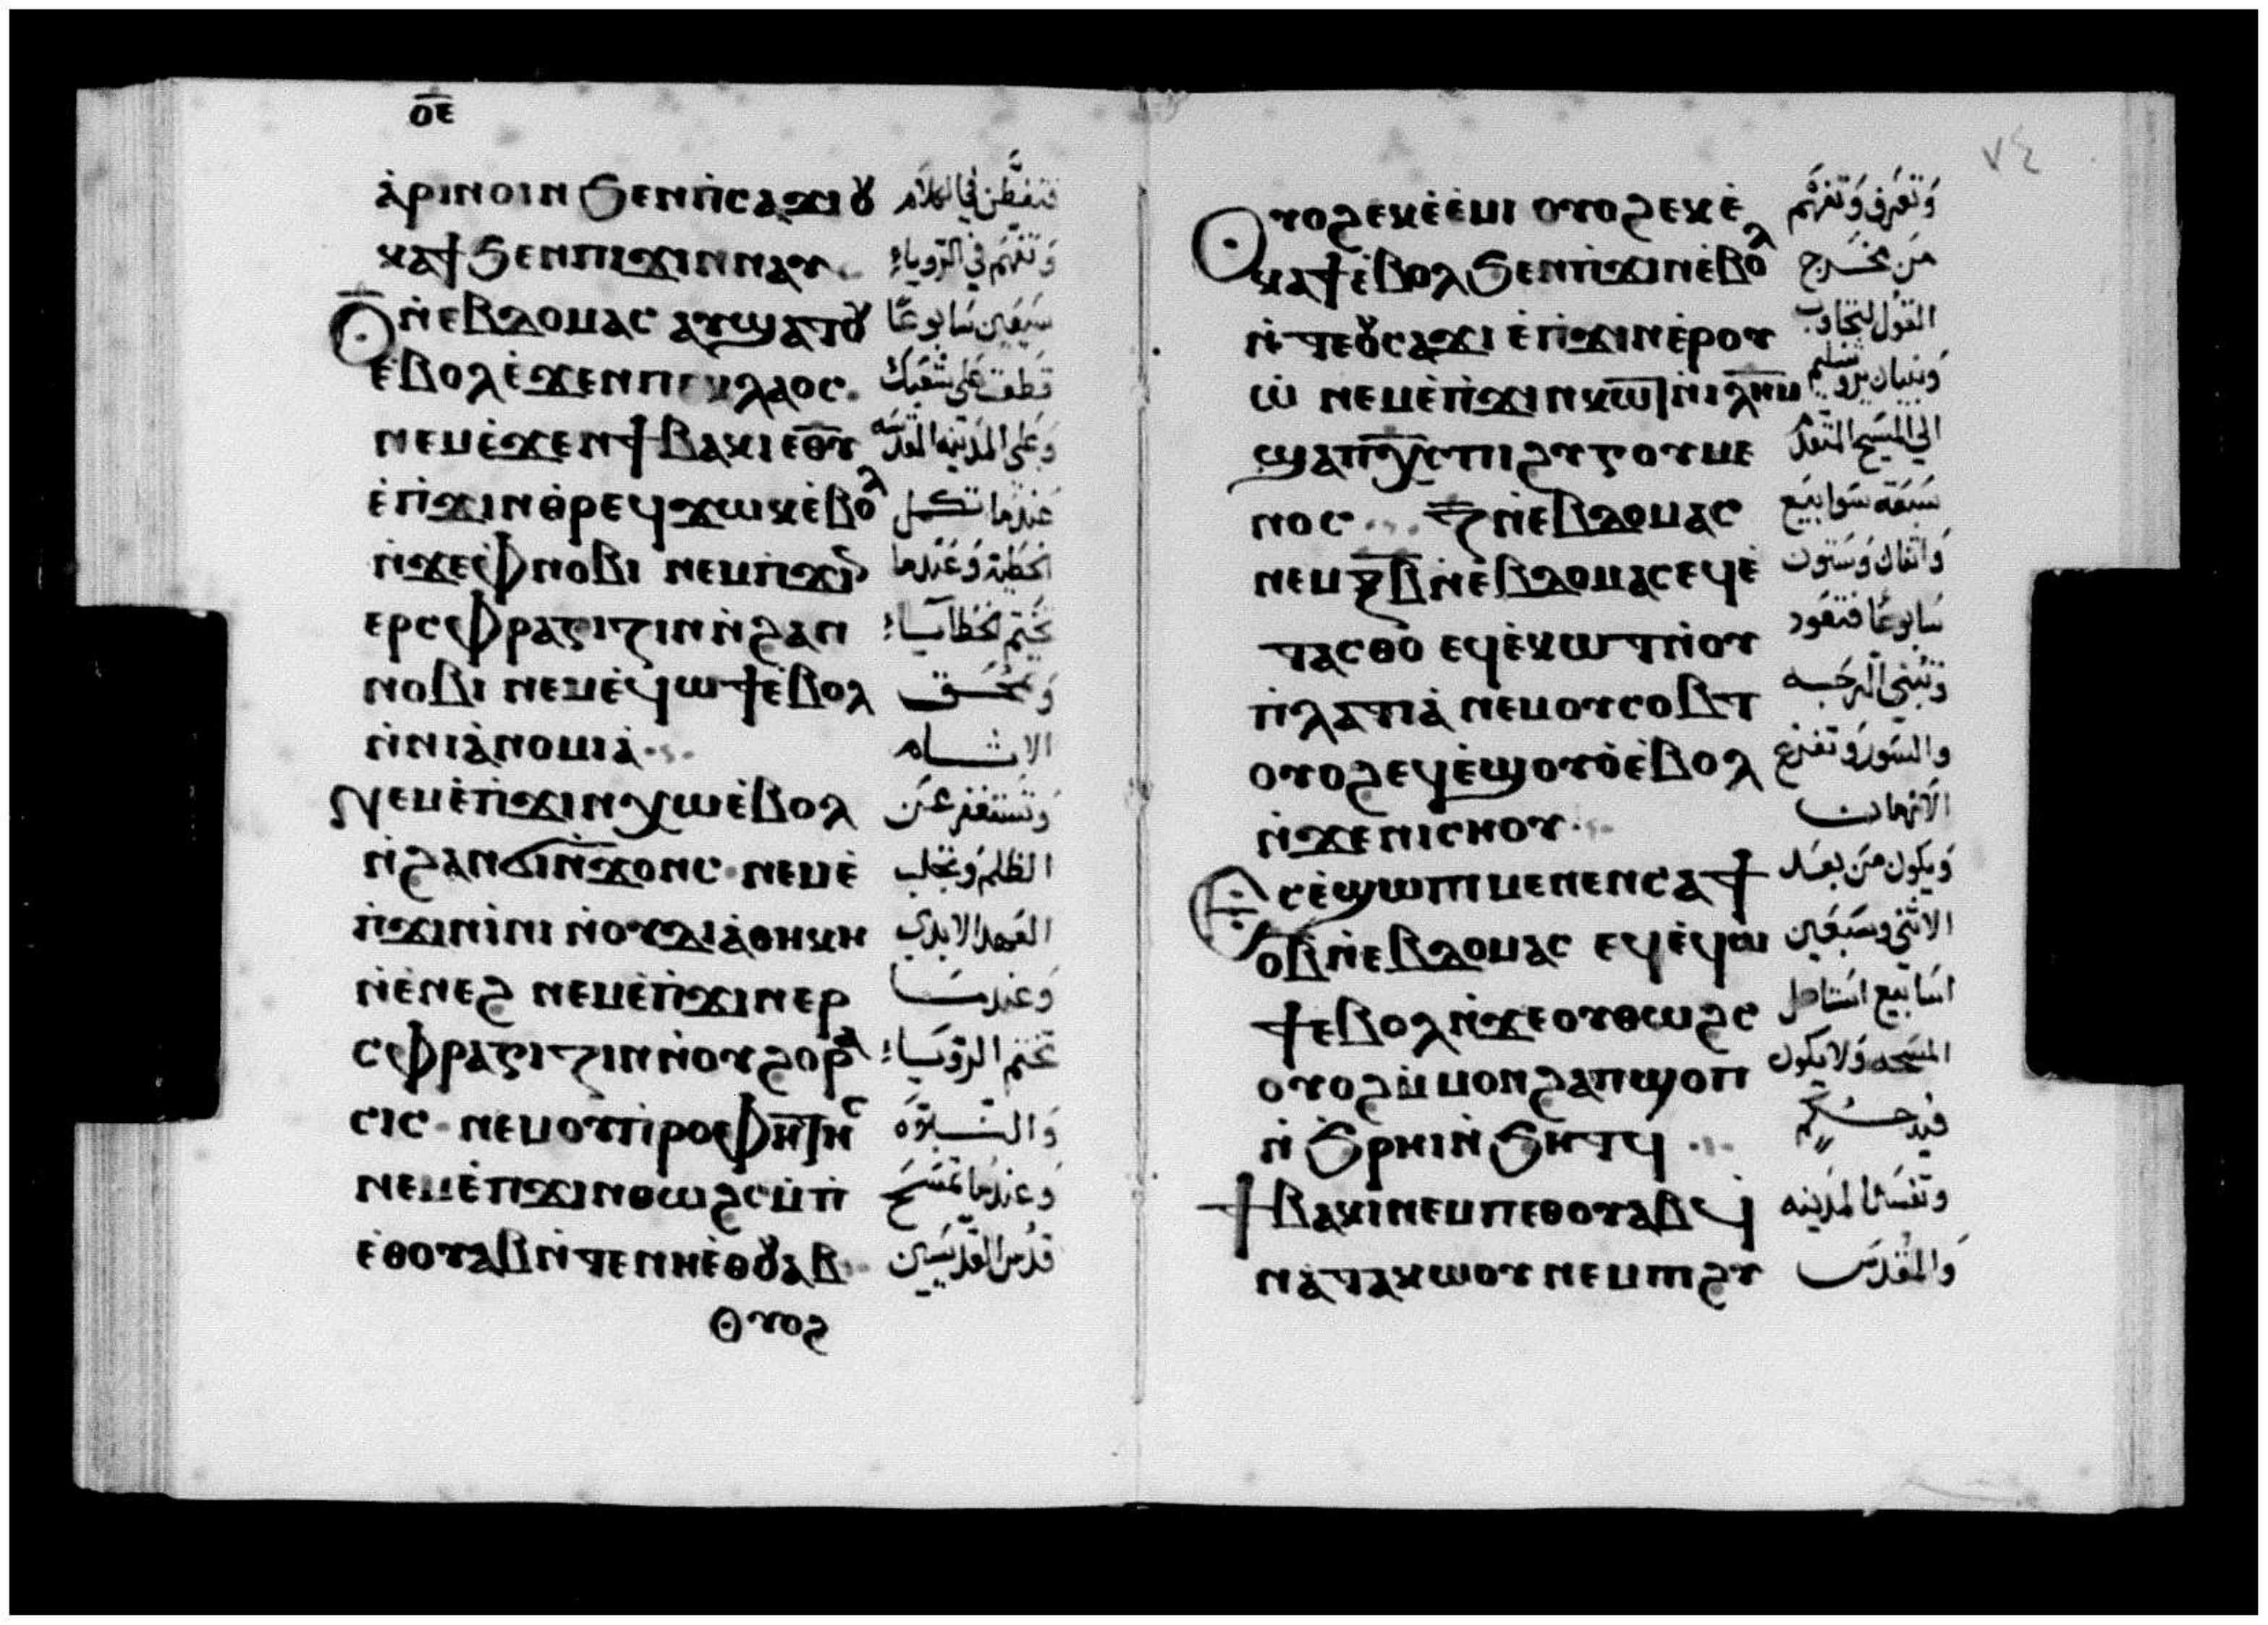 ⲟ̅ⲉ̅
ⲁ̀ⲣⲓⲛⲟⲓⲛ ϧⲉⲛⲡ̀ⲥⲁϫⲓ ⲟⲩ فتفطن في الكلام
ⲕⲁϯ ϧⲉⲛⲡⲓϫⲓⲛⲛⲁⲩ وتفهم في الرويا
ⲟ̅ ⲛ̀ⲉⲃⲇⲟⲙⲁⲥ ⲁⲩϣⲁⲧⲟⲩ سبعين سابوعًا
ⲉⲃⲟⲗ ⲉ̀ϫⲉⲛⲡⲉⲕⲗⲁⲟⲥ قطعت على شعبك
ⲛⲉⲙⲉ̀ϫⲉⲛϯⲃⲁⲕⲓ ⲉ̅ⲑ̅ⲩ̅ وعلى المدينه المقدسه
ⲉ̀ⲡϫⲓⲛⲑ̀ⲣⲉϥϫⲱⲕⲉ̀ⲃⲟⲗ عندما تكمل
ⲛ̀ϫⲉⲫⲛⲟⲃⲓ ⲛⲉⲙⲡ̀ϫⲓⲛ الخطية وعندما
ⲉⲣⲥⲫⲣⲁⲅⲓⲍⲓⲛ ⲛ̀ϩⲁⲛ تختم الخطايا
ⲛⲟⲃⲓ ⲛⲉⲙⲉ̀ϥⲱϯⲉ̀ⲃⲟⲗ وتمحق
ⲛ̀ⲛⲓⲁ̀ⲛⲟⲙⲓⲁ̀ الاثام
ⲛⲉⲙⲉ̀ⲡϫⲓⲛⲭⲱⲉ̀ⲃⲟⲗ وتستغفر عن
ⲛ̀ϩⲁⲛϭⲓⲛ̀ϫⲟⲛⲥ ⲛⲉⲙⲉ̀ الظلم وتجلب
ⲡ̀ϫⲓⲛⲓ̀ⲛⲓ ⲛ̀ⲟⲩⲇⲓⲁ̀ⲑⲏⲕⲏ العهد الابدي
ⲛ̀ⲉ̀ⲛⲉϩ ⲛⲉⲙⲉ̀ⲡϫⲓⲛⲉⲣ وعندما
ⲥⲫⲣⲁⲅⲓⲍⲓⲛ ⲛ̀ⲟⲩϩⲟⲣⲁ تختم الرويا
ⲥⲓⲥ ⲛⲉⲙⲟⲩⲡ̀ⲣⲟⲫⲏⲧⲏⲥ والنبوة
ⲛⲉⲙⲉ̀ⲡϫⲓⲛⲑⲱϩⲥ ⲙ̀ⲡ وعندما تمسح
ⲉ̀ⲑⲟⲩⲁⲃ ⲛ̀ⲧⲉⲛⲏⲉ̀ⲑⲟⲩⲁⲃ قدس القديسين
ⲟⲩⲟϩ
٧٤
ⲟⲩⲟϩ ⲉⲕⲉ̀ⲉ̀ⲙⲓ ⲟⲩⲟϩ ⲉⲕⲉ̀ وتعرف وتفهم
ⲕⲁϯ ⲉ̀ⲃⲟⲗ ϧⲉⲛⲡϫⲓⲛⲉ̀ⲃⲟⲗ من مخرج
ⲛ̀ⲧⲉⲟⲩⲥⲁϫⲓ ⲉ̀ⲡϫⲓⲛⲉ̀ⲣⲟⲩ القول لتجاوب
ⲱ̀ ⲛⲉⲙⲉ̀ⲡϫⲓⲛⲕⲱⲧ ⲛ̀ⲓ̅ⲗ̅ⲏ̅ⲙ̅ وبنيان يروشليم
ϣⲁⲡⲭ̅ⲥ̅ ⲡⲓϩⲩⲅⲟⲩⲙⲉ الي المسيح المتقدم
ⲛⲟⲥ ⲍ̅ ⲛ̀ⲉⲃⲇⲟⲙⲁⲥ سبعة سوابيع
ⲛⲉⲙ ⲝ̅ⲃ̅ ⲛ̀ⲉⲃⲇⲟⲙⲁⲥ ⲉϥⲉ̀ واثنان وستون
ⲧⲁⲥⲑⲟ ⲉϥⲉ̀ⲕⲱⲧ ⲛ̀ⲟⲩ سابوعًا فتعود
ⲡ̀ⲗⲁⲧⲓⲁ̀ ⲛⲉⲙⲟⲩⲥⲟⲃⲧ وتبني الرحبه
ⲟⲩⲟϩ ⲉϥⲉ̀ϣⲟⲩⲟ̀ⲉ̀ⲃⲟⲗ والسور وتفرغ
ⲛ̀ϫⲉⲛⲓⲥⲏⲟⲩ الازمان
ⲉⲥⲉ̀ϣⲱⲡⲓ ⲙⲉⲛⲉⲛⲥⲁϯ ويكون من بعد
ⲟ̅ⲃ̅ ⲛ̀ⲉⲃⲇⲟⲙⲁⲥ ⲉϥⲉ̀ϥⲱ الاثني وسبعين
ϯⲉⲃⲟⲗ ⲛ̀ϫⲉⲟⲩⲑⲱϩⲥ اسابيع استاصل
ⲟⲩⲟϩ ⲙ̀ⲙⲟⲛϩⲁⲡϣⲟⲡ المسحه ولا يكون
ⲛ̀ϧⲣⲏⲓ ⲛ̀ϧⲏⲧϥ فيه حكم
ϯⲃⲁⲕⲓ ⲛⲉⲙⲡⲉⲑⲟⲩⲁⲃ ϥ وتفسد المدينه
ⲛⲁⲧⲁⲕⲱⲟⲩ ⲛⲉⲙⲡⲓϩⲩ والمقدس